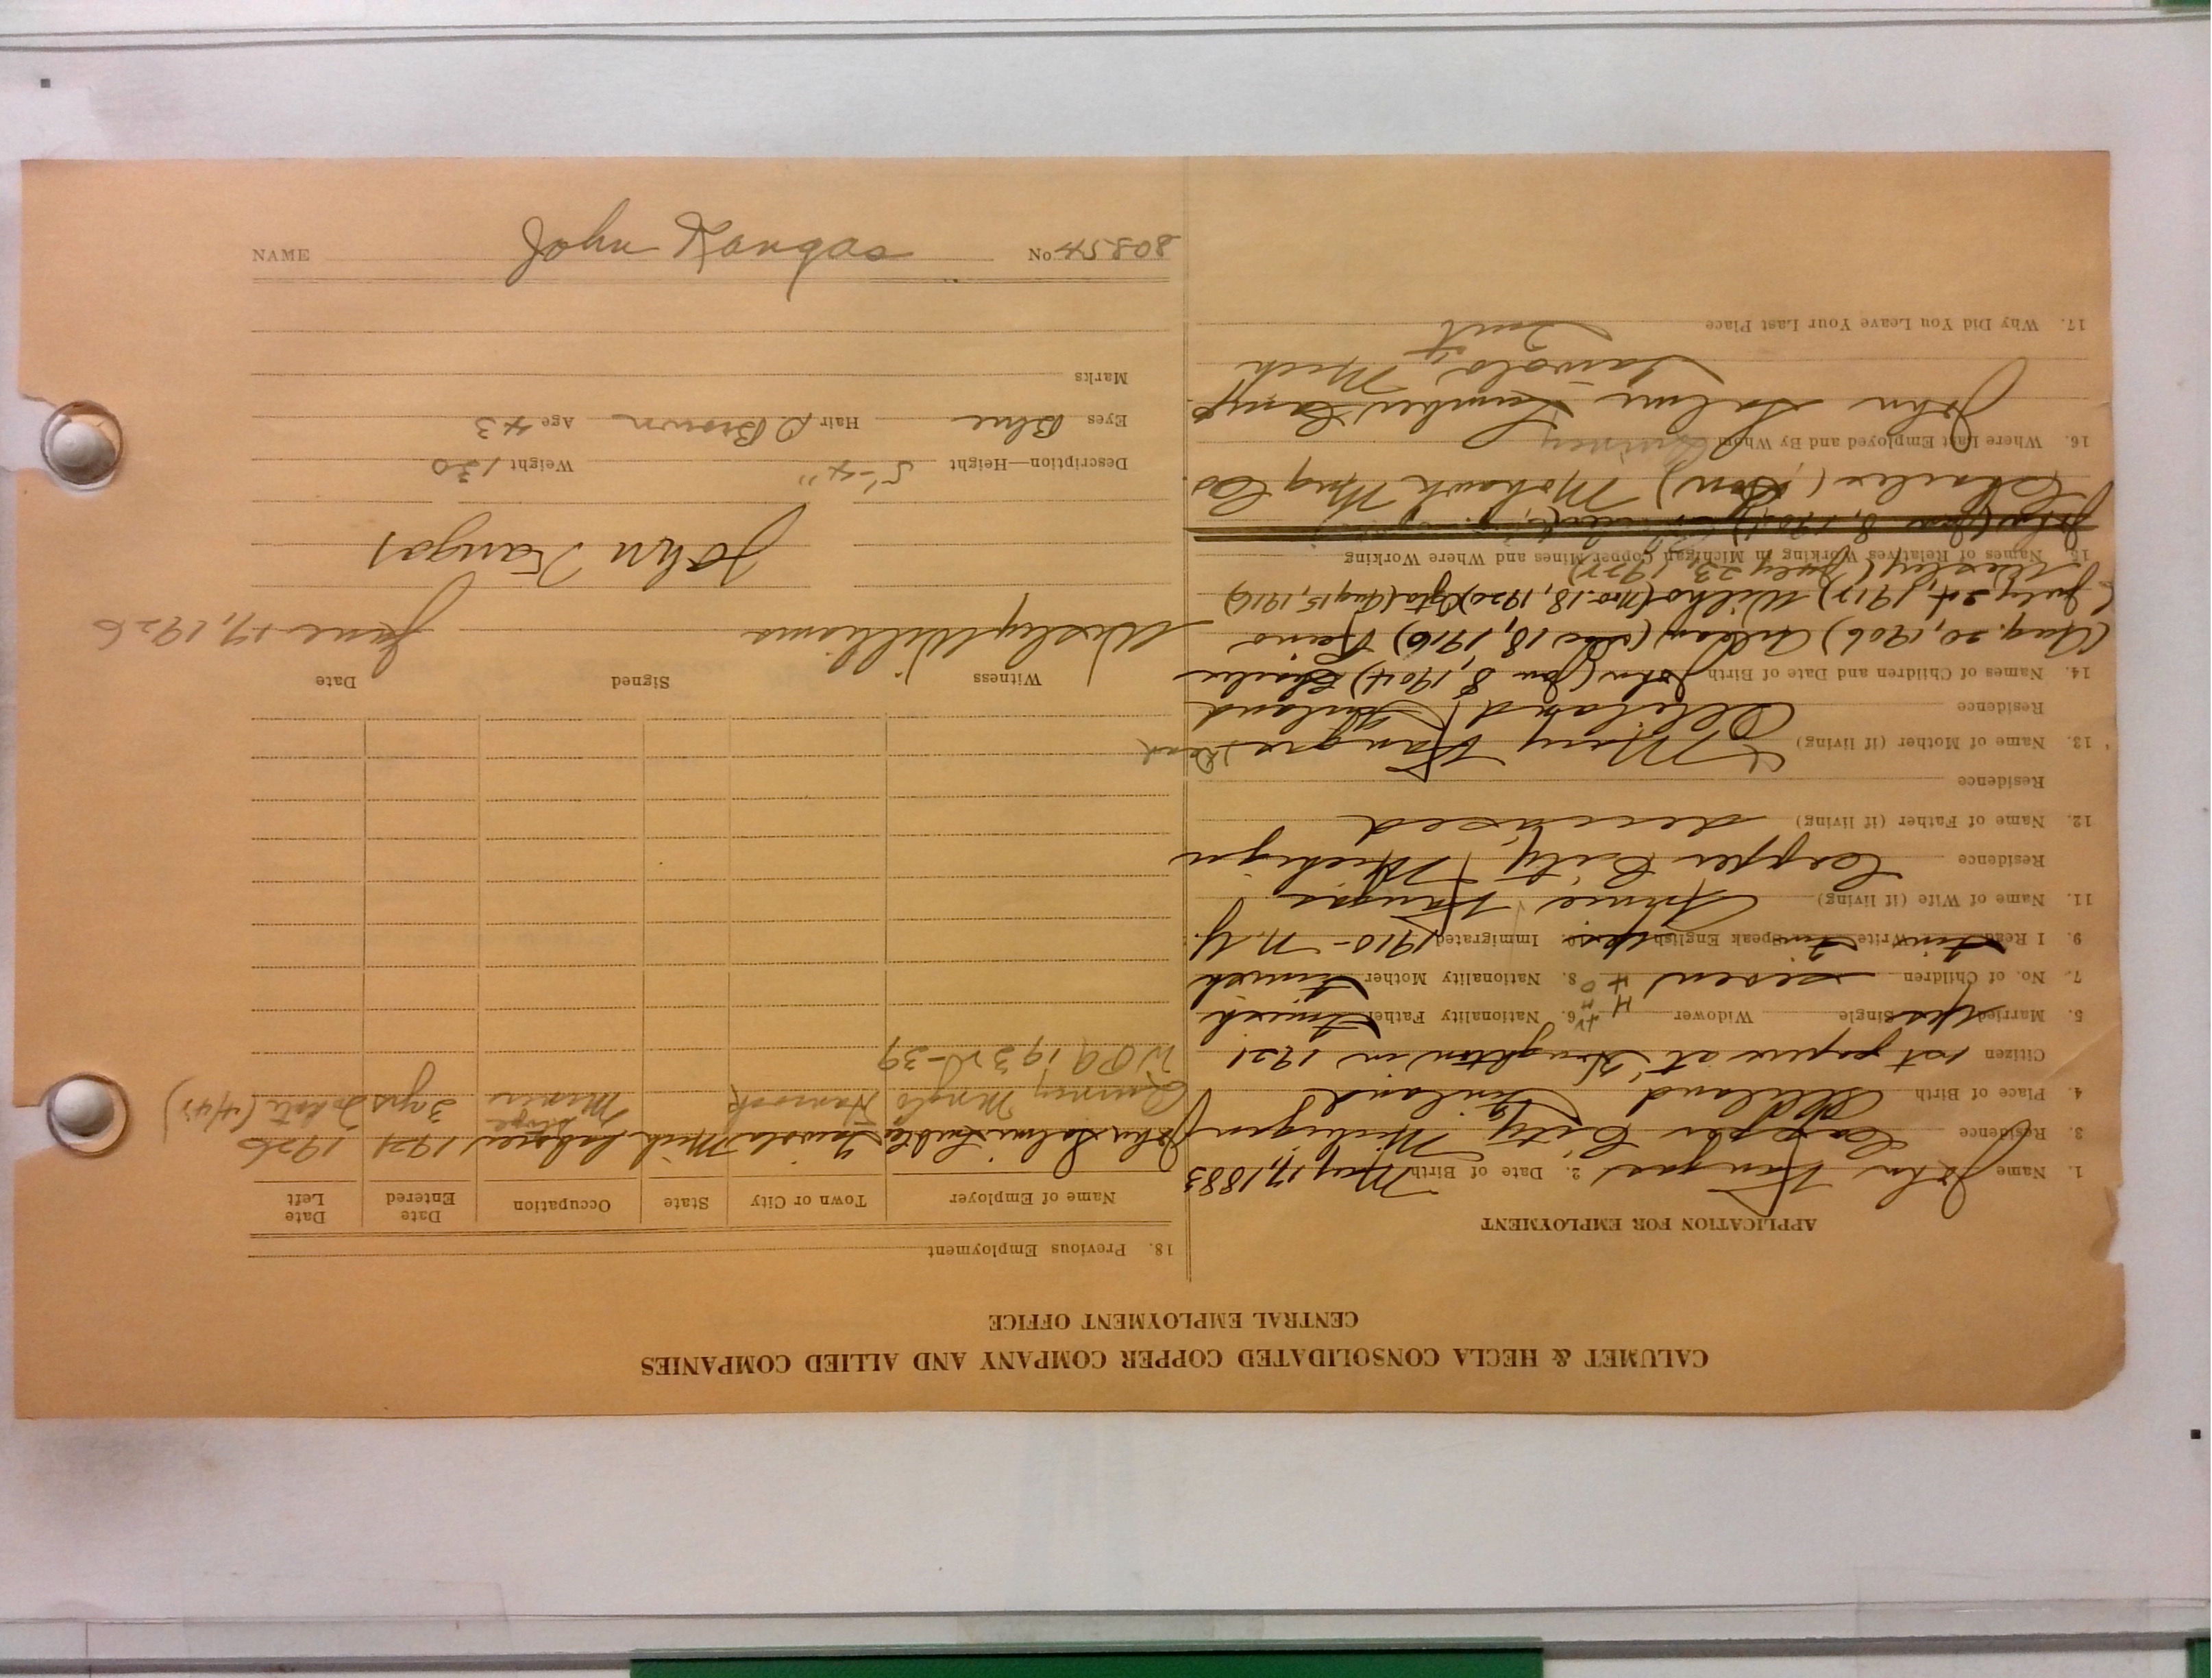 CALUMET & HECLA CONSOLIDATED COPPER COMPANY AND ALLIED COMPANIES
CENTRAL EMPLOYMENT OFFICE
APPLICATION FOR EMPLOYMENT
1. Name John Kangas 2. Date of Birth May 17, 1883
3. Residence Copper City Michigan
4. Place of Birth Finland
Citizen 1st papers at Houghton in 1921
5. Married yes Single Widower 6. Nationality Father Finnish
7. No. of Children seven 8. Nationality Mother Finnish
9. I Read Finn Write Finn Speak English yes 10. Immigrated 1910 - N.Y.
11. Name of Wife (if living) Kangas
Residence Copper City, Michigan
12. Name of Father (if living) deceased
Residence
13. Name of Mother (if living) Mary Kangas Dead
Residence Finland
14. Names of Children and Date of Birth John (Jan 8, 1904) Charles
(Aug. 20, 1906) (Dec 18, 1916) Reino
(July 24, 1917) Wilho (Nov. 18, 1920) (Aug 15, 1919)
Wesley (July 23, 1922)
15. Names of Relatives Working in Michigan Copper Mines and Where Working
Charles (Son) Mohawk Mng Co
16. Where Last Employed and By Whom Quincy
John Salmi Lumber Camp
Mich
17. Why Did You Leave Your Last Place Quit
18. Previous Employment
Name of Employer Town or City State Occupation Date Entered Date Left
John Salmi Mich Laborer 1921 1926
Quincy Mng Co Hancock Miner Stope 3 yrs
WPA 1932-39
Witness Signed Date
Wesley Williams June 17, 1926
John Kangas
Description—Height 5'-4" Weight 130
Eyes Blue Hair D Brown Age 43
Marks
NAME John Kangas No 80854